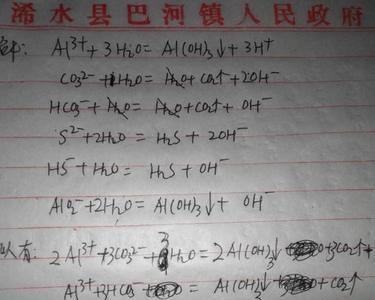 浠水县巴河镇人民政府
Al³⁺+3H₂O=Al(OH)₃↓+3H⁺
CO₃²⁻+H₂O=H₂O+CO₂↑+2OH⁻
HCO₃⁻+H₂O=H₂O+CO₂↑+OH⁻
S²⁻+2H₂O=H₂S+2OH⁻
HS⁻+H₂O=H₂S+OH⁻
AlO₂⁻+2H₂O=Al(OH)₃↓+OH⁻
以有:2Al³⁺+3CO₃²⁻+3H₂O=2Al(OH)₃↓+3CO₂↑
Al³⁺+3HCO₃⁻=Al(OH)₃↓+CO₂↑